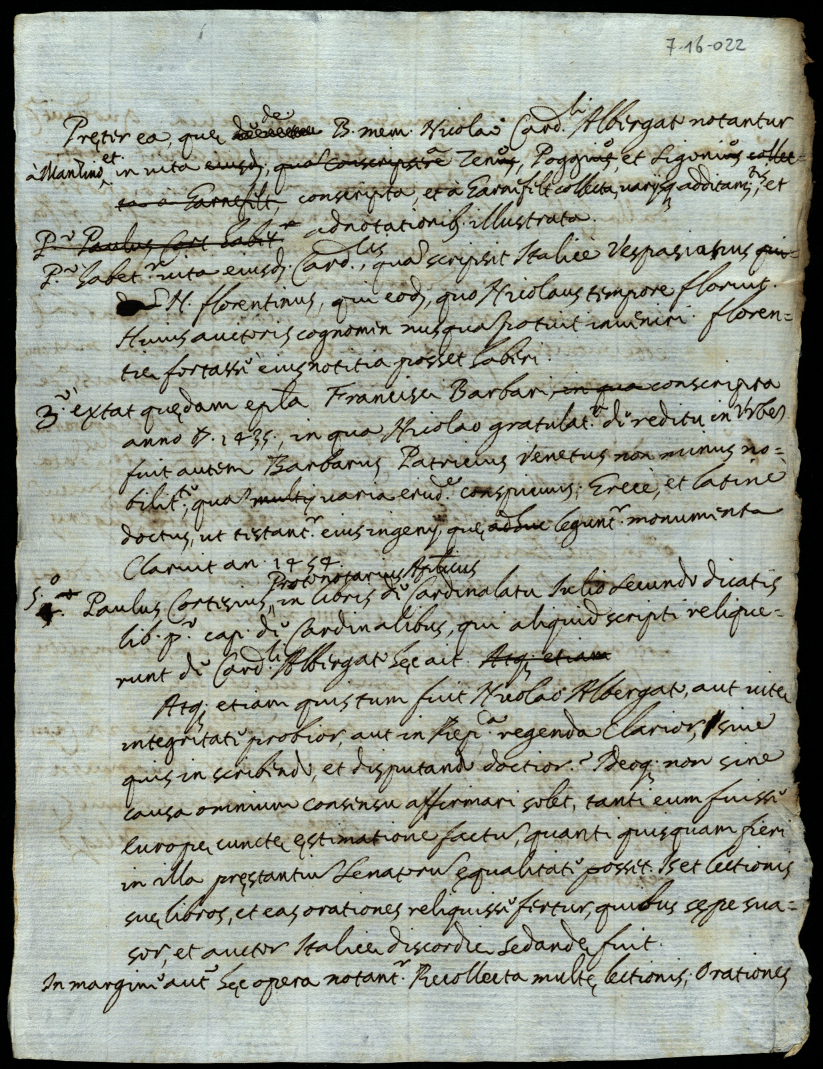 7-16-022
Pręter ea, quę de B. mem. Nicolao Card.li Albergat notantur
à Manlino, et in vita eiusd., qua conscripsere Zenus, Poggius, et Sigonius collec-
ta a Garnefelt conscripta, et à Garnefelt collecta, varijsq. additam.tis, et
adnotationib. illustrata.
P.o Paulus Cort habet
P.o habet.r vita eiusd. Card.lis, qua scripsit Italice Vespasianus
H. florentinus, qui eod., quo Nicolaus tempore floruit.
Huius auctoris cognomen nusqua potuit inveniri. Floren=
tię fortasse eius notitia posset haberi.
3.o extat quędam ep.la Francisci Barbari, in qua conscripta
anno D. 1435., in qua Nicolao gratulat.r de reditu in Urbe
fuit autem Barbarus Patricius Venetus non minus no=
bilit.e, qua multa varia erud.e conspicuus; Grece, et latine
doctus, ut testant.r eius ingenij, quę adhuc legunt.r monumenta
Claruit an. 1454.
Protonotarius Ap.licus
5.o Paulus Cortesius, in libris de Cardinalatu Iulio Secundo dicatis
lib. p.o cap. de Cardinalibus, qui aliquid scripti relique=
runt de Card.li Albergat hęc ait. Atq. etiam
Atq. etiam quis tum fuit Nicolao Albergat, aut vitę
integritate probior, aut in Reip.ca regenda Clarior, sive
quis in scribendo, et disputando doctior? Deoq. non sine
causa omnium consensu affirmari solet, tanti eum fuisse
Europę cunctę ęstimatione factu, quanti quisquam fieri
in illa pręstantiu Senatoru ęqualitate possit. Is et lectionis
suę libros, et eas orationes reliquisse fertur, quibus sępe sua=
sor, et auctor Italicę discordię sedandę fuit.
In margine aut.e hęc opera notant.r Recollecta multę lectionis; Orationes